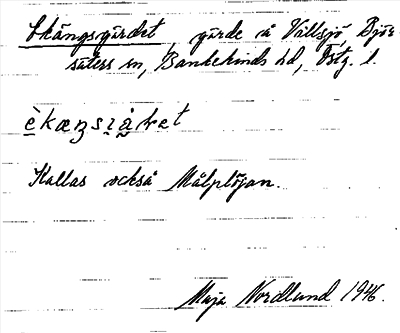 Ekängsgärdet gärde å Vällsjö, Björ-
säters sn, Bankekinds hd, Östg. l
èkæŋsjäṛet
Kallas också Målplöjan.
Maja Nordlund 1946.